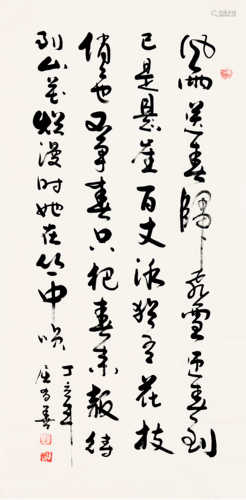 風雨送春歸飛雪迎春到
已是懸崖百丈冰猶有花枝
俏俏也不争春只把春来報待
到山花爛漫時她在丛中笑
丁亥年